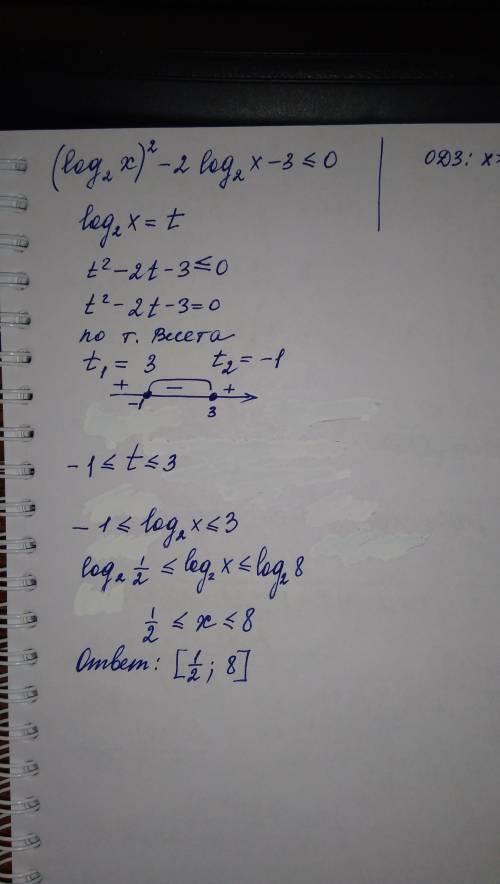 (log₂x)² - 2 log₂x - 3 ≤ 0
ОДЗ: x>
log₂x = t
t² - 2t - 3 ≤ 0
t² - 2t - 3 = 0
по т. Виета
t₁ = 3 t₂ = -1
+ - +
-1 3
-1 ≤ t ≤ 3
-1 ≤ log₂x ≤ 3
log₂ 1/2 ≤ log₂x ≤ log₂8
1/2 ≤ x ≤ 8
Ответ: [1/2; 8]